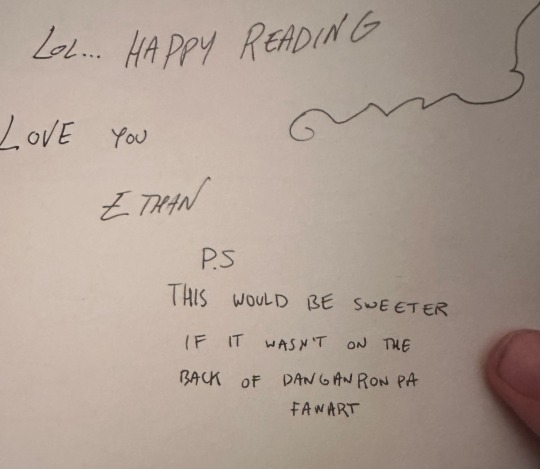 LOL... HAPPY READING
LOVE YOU
ETHAN
P.S
THIS WOULD BE SWEETER
IF IT WASN'T ON THE
BACK OF DANGANRONPA
FANART